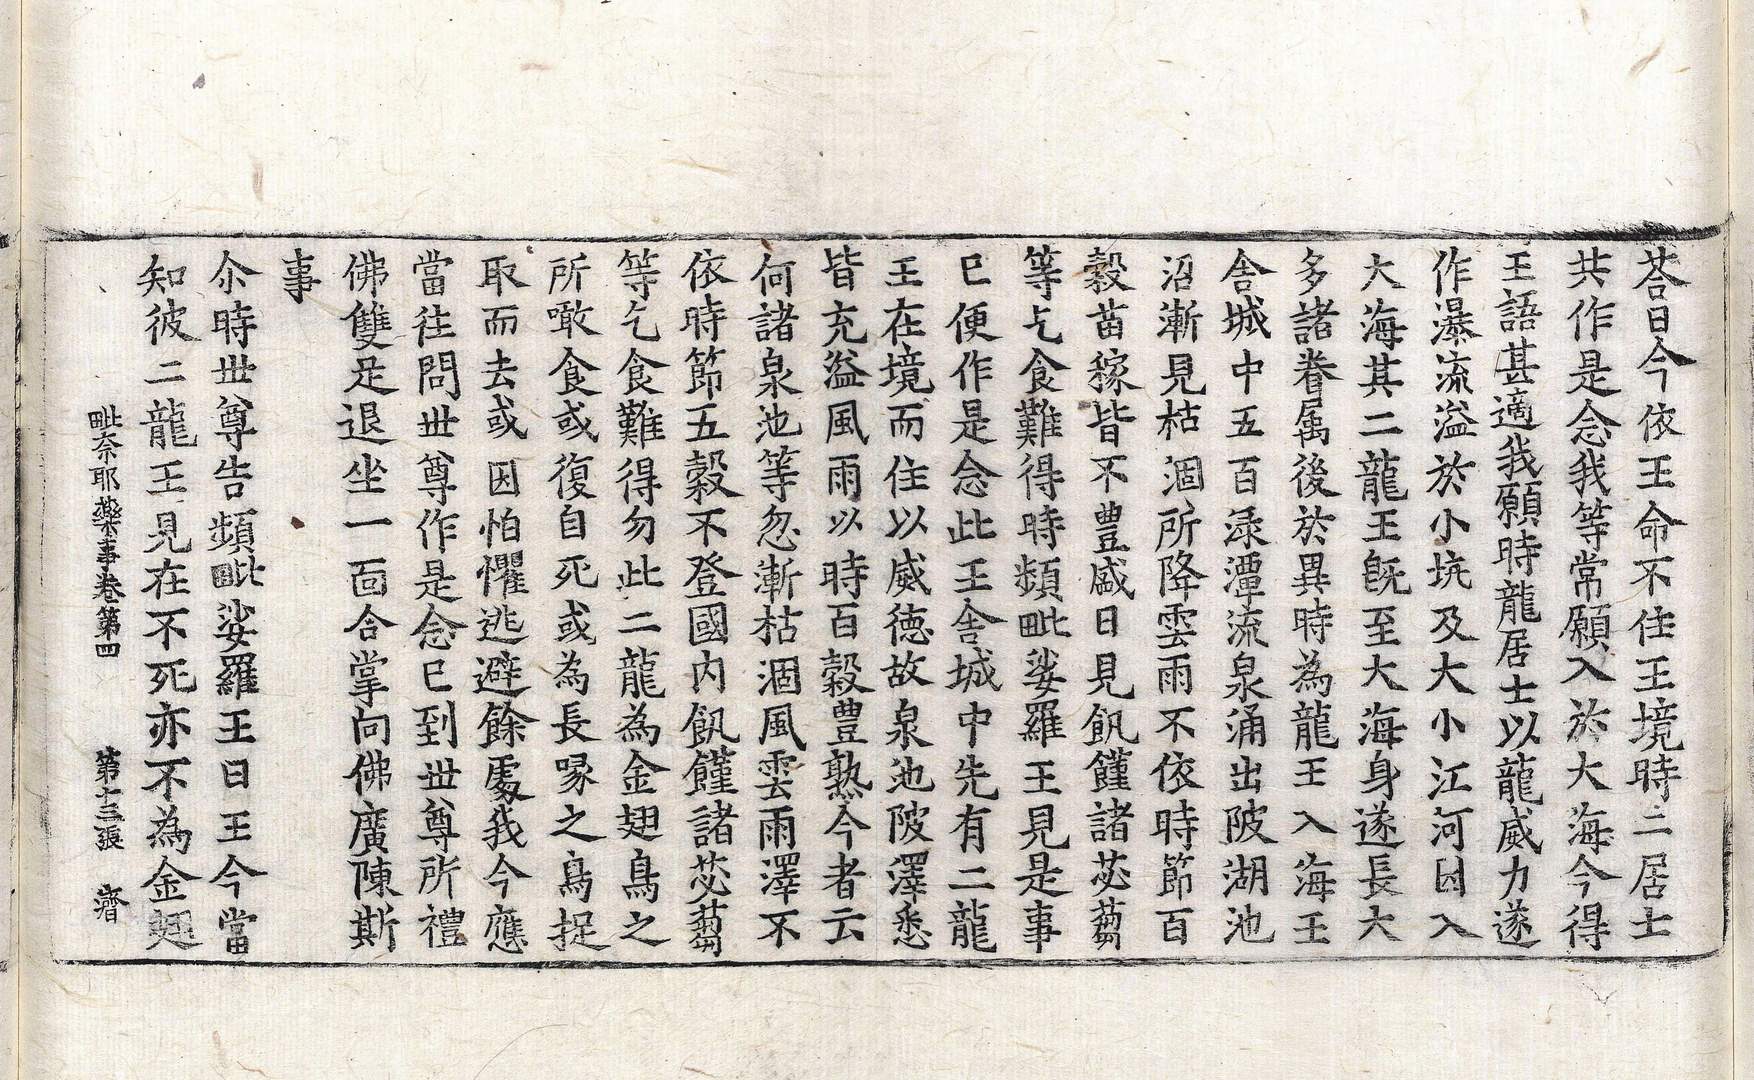 荅曰今依王命不住王境時二居士
共作是念我等常願入於大海今得
王語甚適我願時龍居士以龍威力遂
作瀑流溢於小坑及大小江河因入
大海其二龍王旣至大海身遂長大
多諸眷属後於異時為龍王入海王
舍城中五百渌潭流泉涌出陂湖池
沼漸見枯涸所降雲雨不依時節百
穀苗稼皆不豊盛日見飢饉諸苾蒭
等乞食難得時頻毗娑羅王見是事
已便作是念此王舍城中先有二龍
王在境而住以威德故泉池陂澤悉
皆充溢風雨以時百穀豊熟今者云
何諸泉池等忽漸枯涸風雲雨澤不
依時節五穀不登國内飢饉諸苾蒭
等乞食難得勿此二龍為金翅鳥之
所噉食或復自死或為長喙之鳥捉
取而去或因怕懼逃避餘處我今應
當往問世尊作是念已到世尊所禮
佛雙足退坐一面合掌向佛廣陳斯
事
尒時世尊告頻毗娑羅王曰王今當
知彼二龍王見在不死亦不為金翅
毗奈耶藥事卷第四 第十三張 濟